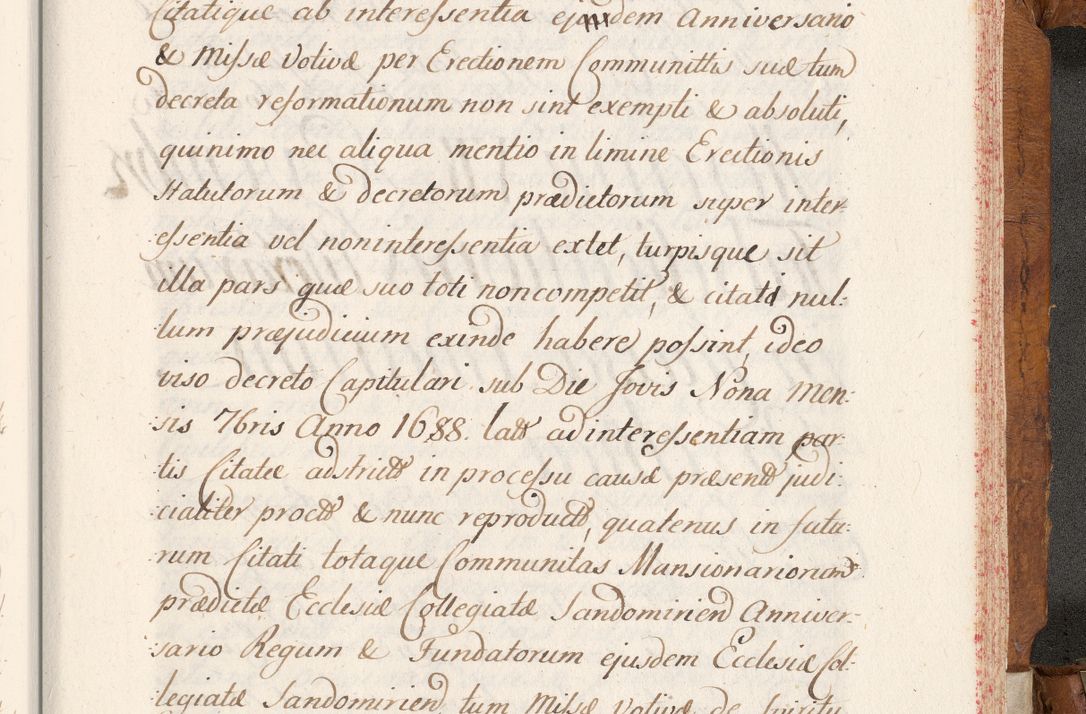 Citatique ab interessentia ejusdem Anniversario
& Missæ Votivæ per Erectionem Communittis suæ tum
decreta reformationum non sint exempti & absoluti,
quinimo nec aliqua mentio in limine Erectionis
statutorum & decretorum prædictorum super inter-
essentia vel noninteressentia extet, turpisque sit
illa pars quæ suo toti noncompetit, & citati nul:
lum præjudicium exinde habere possint, ideo
viso decreto Capitulari sub Die Jovis Nona Men:
sis 7bris Anno 1688. latt adinteressentiam par:
tis Citatæ adstrictt in processu causæ præsentt judi:
cialiter proctt & nunc reproductt, quatenus in futu:
rum Citati totaque Communitas Mansionariorum
prædictæ Ecclesiæ Collegiatæ Sandomirien Anniver:
sario Regum & Fundatorum ejusdem Ecclesiæ Col:
legiatæ Sandomirien, tum Missæ Votivæ de Spiritu